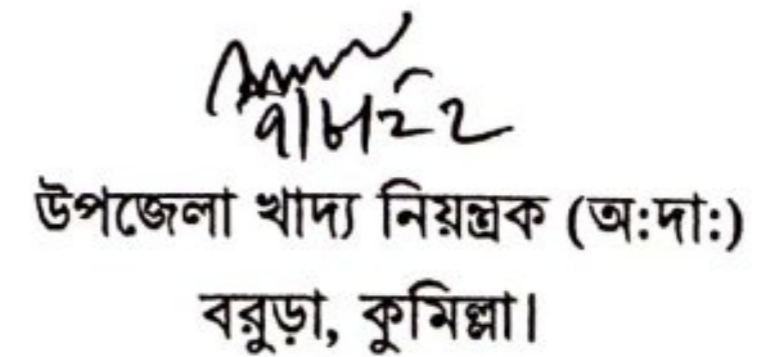 ৭/৮/২২
উপজেলা খাদ্য নিয়ন্ত্রক (অ:দা:)
বরুড়া, কুমিল্লা।